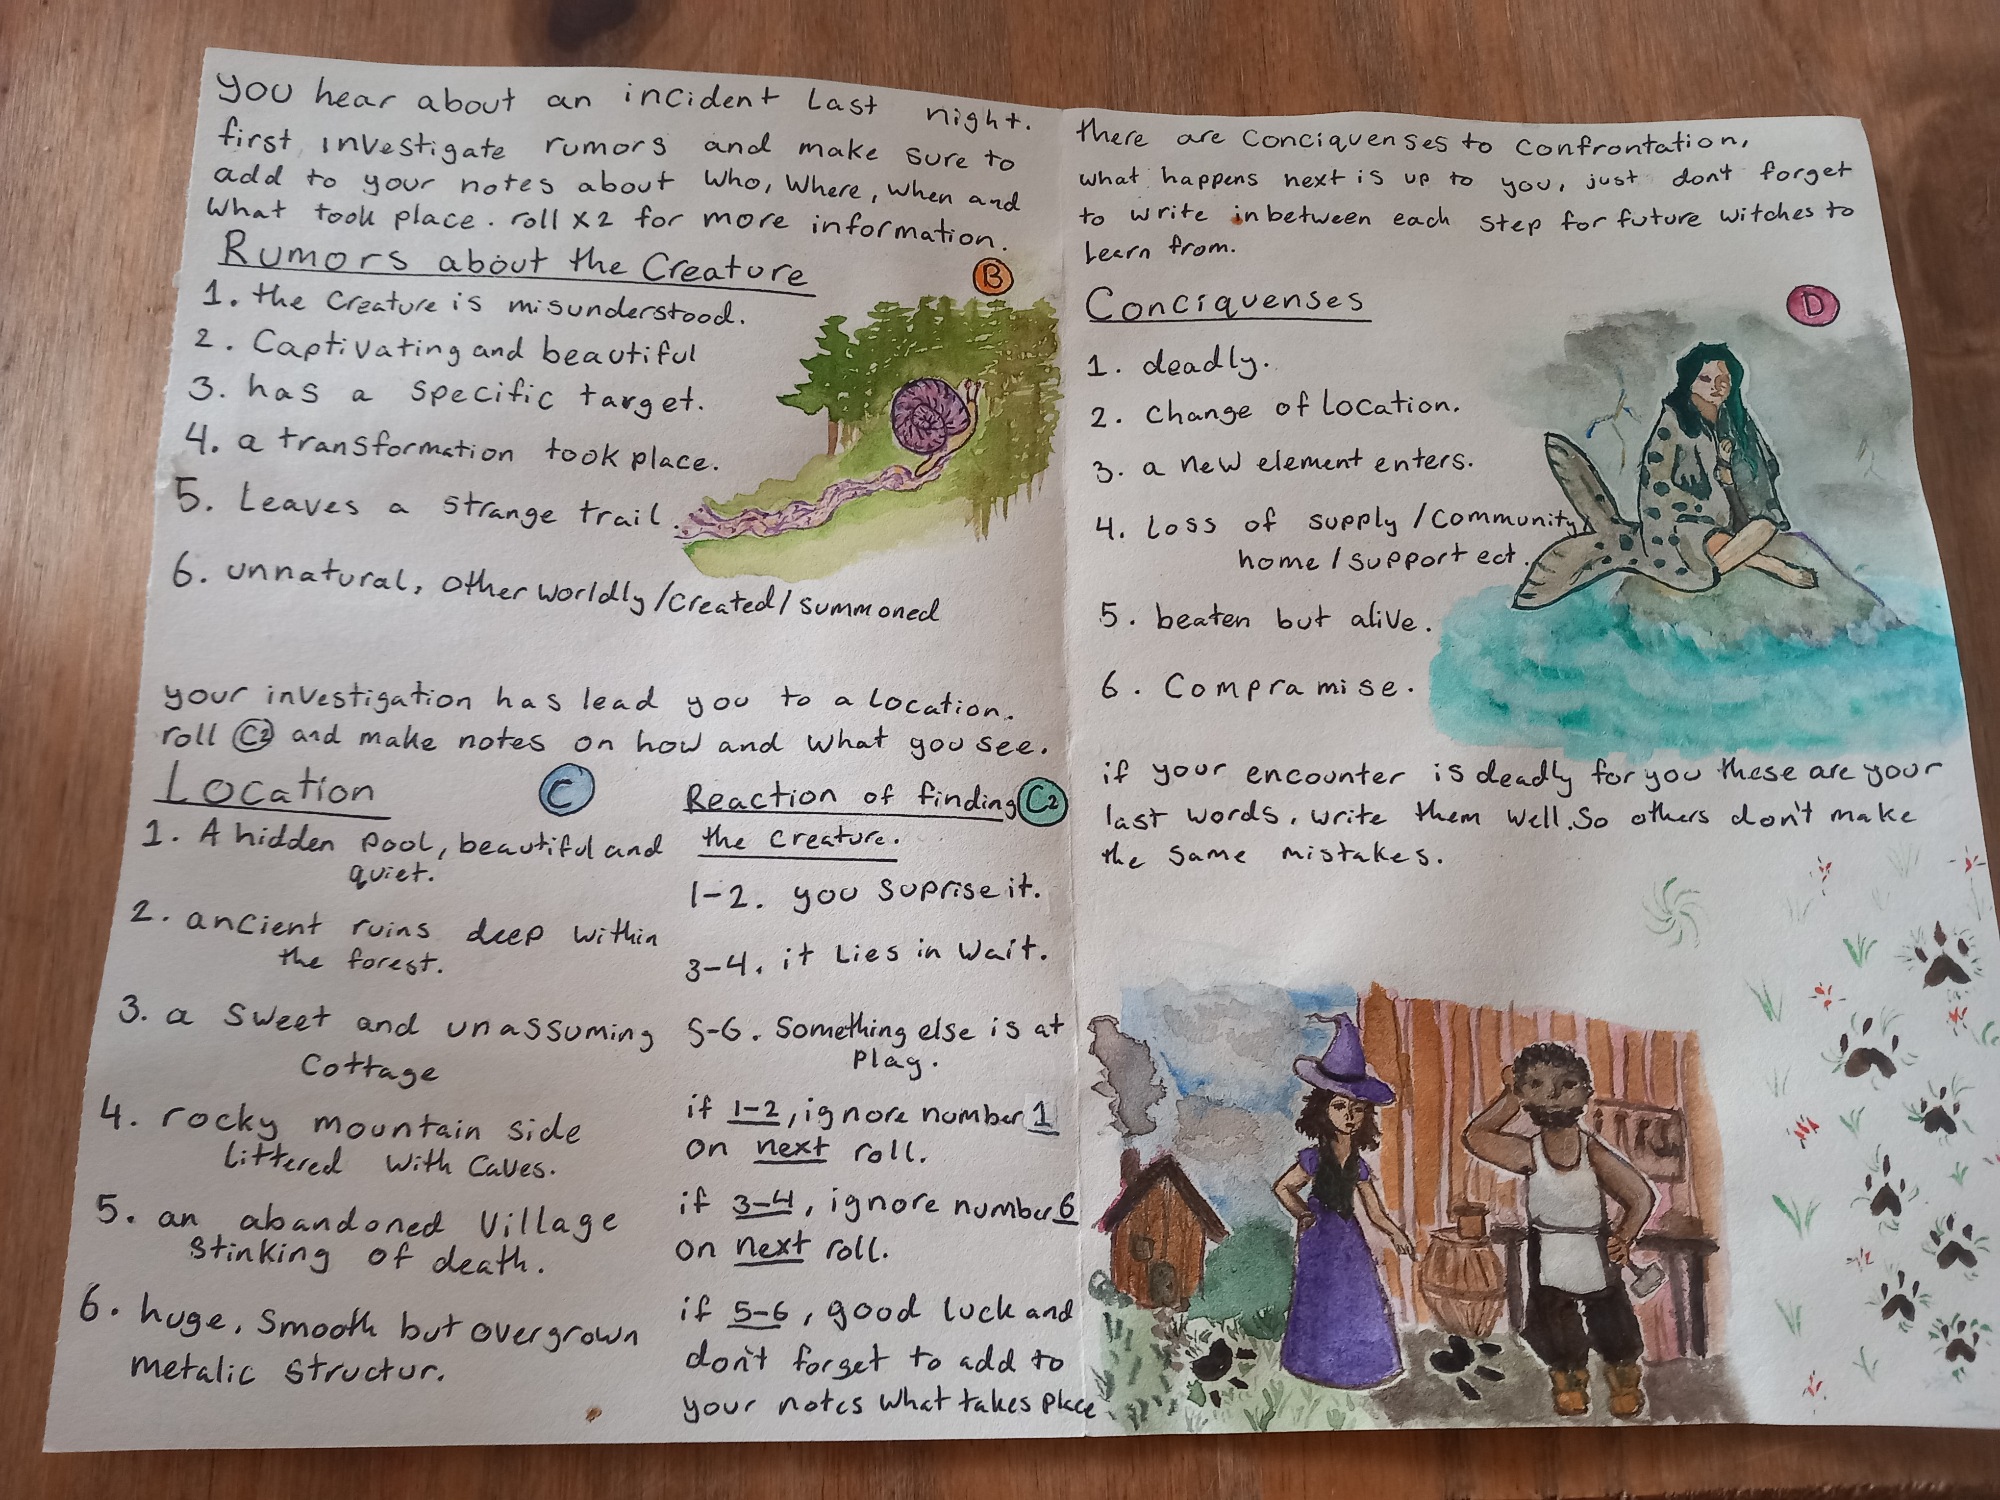 you hear about an incident Last night.
first investigate rumors and make sure to
add to your notes about Who, Where, when and
What took place. roll x2 for more information.
Rumors about the Creature
B
1. the Creature is misunderstood.
2. Captivating and beautiful
3. has a specific target.
4. a transformation took place.
5. Leaves a strange trail.
6. unnatural, otherworldly/created/summoned
your investigation has lead you to a Location.
roll C2 and make notes on how and what you see.
Location
C
1. A hidden pool, beautiful and
quiet.
2. ancient ruins deep within
the forest.
3. a sweet and unassuming
Cottage
4. rocky mountain side
littered with Caves.
5. an abandoned Village
stinking of death.
6. huge, smooth but overgrown
metalic structur.
Reaction of finding C2
the creature.
1-2. you suprise it.
3-4. it Lies in Wait.
5-6. Something else is at
play.
if 1-2, ignore number 1
on next roll.
if 3-4, ignore number 6
on next roll.
if 5-6, good luck and
don't forget to add to
your notes what takes place
there are Conciquenses to Confrontation,
what happens next is up to you, just don't forget
to write inbetween each step for future witches to
Learn from.
Conciquenses
D
1. deadly.
2. Change of Location.
3. a new element enters.
4. Loss of supply/community/
home/support ect.
5. beaten but alive.
6. Compramise.
if your encounter is deadly for you these are your
last words. write them well. So others don't make
the same mistakes.